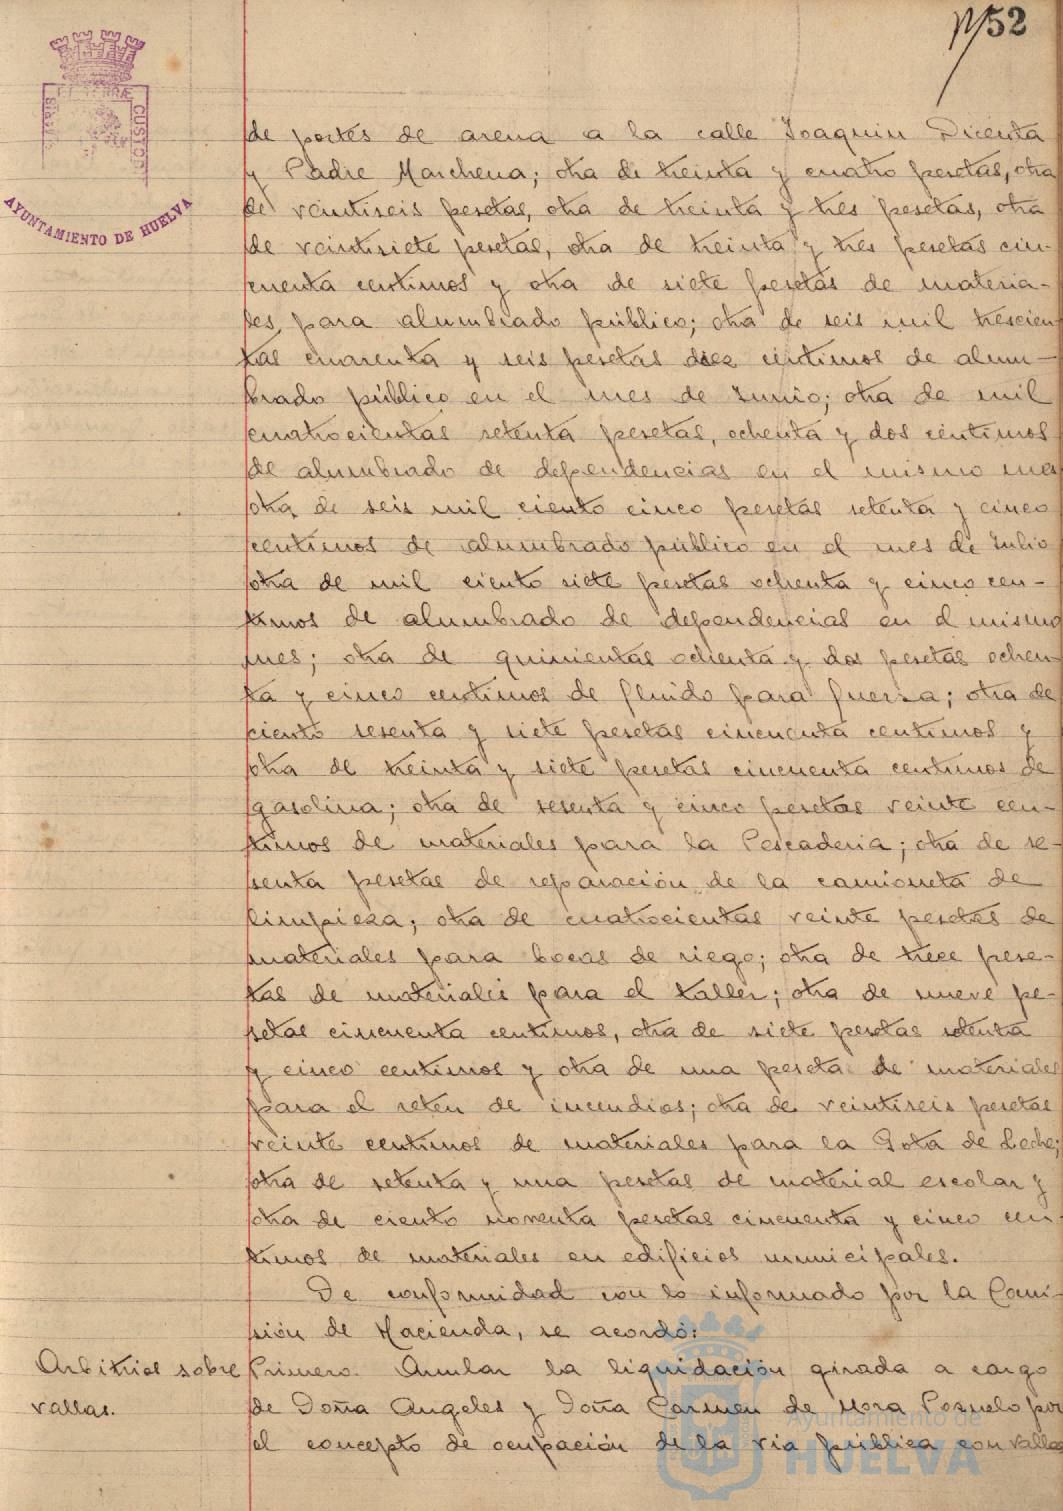 52
ET TERRÆ CUSTODIA
AYUNTAMIENTO DE HUELVA
de portes de arena a la calle Joaquin Dicenta
y Padre Marchena; otra de treinta y cuatro pesetas, otra
de veintiseis pesetas, otra de treinta y tres pesetas, otra
de veintisiete pesetas, otra de treinta y tres pesetas cin-
cuenta centimos y otra de siete pesetas de materia-
les para alumbrado público; otra de seis mil trescien
tas cuarenta y seis pesetas diez centimos de alum-
brado público en el mes de Junio; otra de mil
cuatrocientas setenta pesetas, ochenta y dos centimos
de alumbrado de dependencias en el mismo mes
otra de seis mil ciento cinco pesetas setenta y cinco
centimos de alumbrado público en el mes de Julio
otra de mil ciento siete pesetas ochenta y cinco cen-
timos de alumbrado de dependencias en el mismo
mes; otra de quinientas ochenta y dos pesetas ochen-
ta y cinco centimos de fluido para fuerza; otra de
ciento sesenta y siete pesetas cincuenta centimos y
otra de treinta y siete pesetas cincuenta centimos de
gasolina; otra de sesenta y cinco pesetas veinte cen-
timos de materiales para la Pescaderia; otra de se-
senta pesetas de reparación de la camioneta de
limpieza; otra de cuatrocientas veinte pesetas de
materiales para bocas de riego; otra de trece pese-
tas de materiales para el taller; otra de nueve pe-
setas cincuenta centimos, otra de siete pesetas setenta
y cinco centimos y otra de una peseta de materiales
para el reten de incendios; otra de veintiseis pesetas
veinte centimos de materiales para la Gota de Leche;
otra de setenta y una pesetas de material escolar y
otra de ciento noventa pesetas cincuenta y cinco cen-
timos de materiales en edificios municipales.
De conformidad con lo informado por la Comi-
sión de Hacienda, se acordó:
Arbitrios sobre
vallas.
Primero. Anular la liquidación girada a cargo
de Doña Angeles y Doña Carmen de Mora Pozuelo por
el concepto de ocupación de la via pública con vallas
Ayuntamiento de
HUELVA